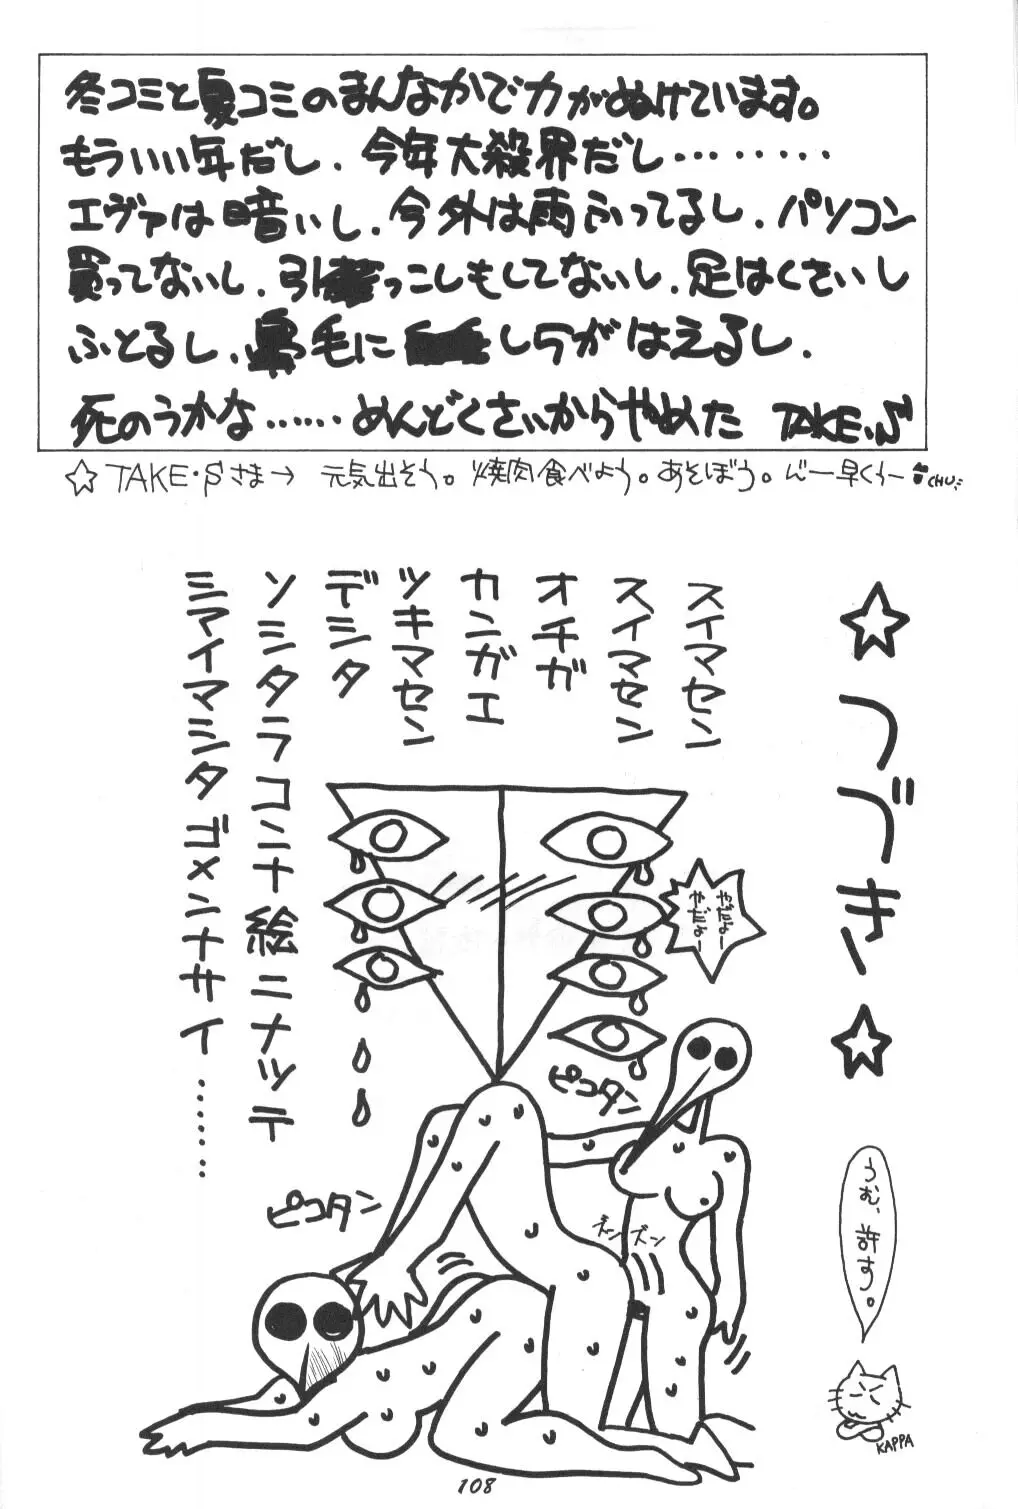 冬コミと夏コミのまんなかで力がぬけています。
もういい年だし、今年大殺界だし………
エヴァは暗いし、今外は雨ふってるし、パソコン
買ってないし、引っこしもしてないし、足はくさいし
ふとるし、鼻毛にしらがはえるし、
死のうかな……めんどくさいからやめた TAKE・S
☆TAKE・Sさま→ 元気出そう。焼肉食べよう。あそぼう。んー早くぅー CHU
☆つづき☆
スイマセン
スイマセン
オチガ
カンガエ
ツキマセン
デシタ
ソシタラコンナ絵ニナッテ
シマイマシタゴメンナサイ………
やだよー
やだよー
ピコタン
ピコタン
ズン
ズン
うむ、許す。
KAPPA
108